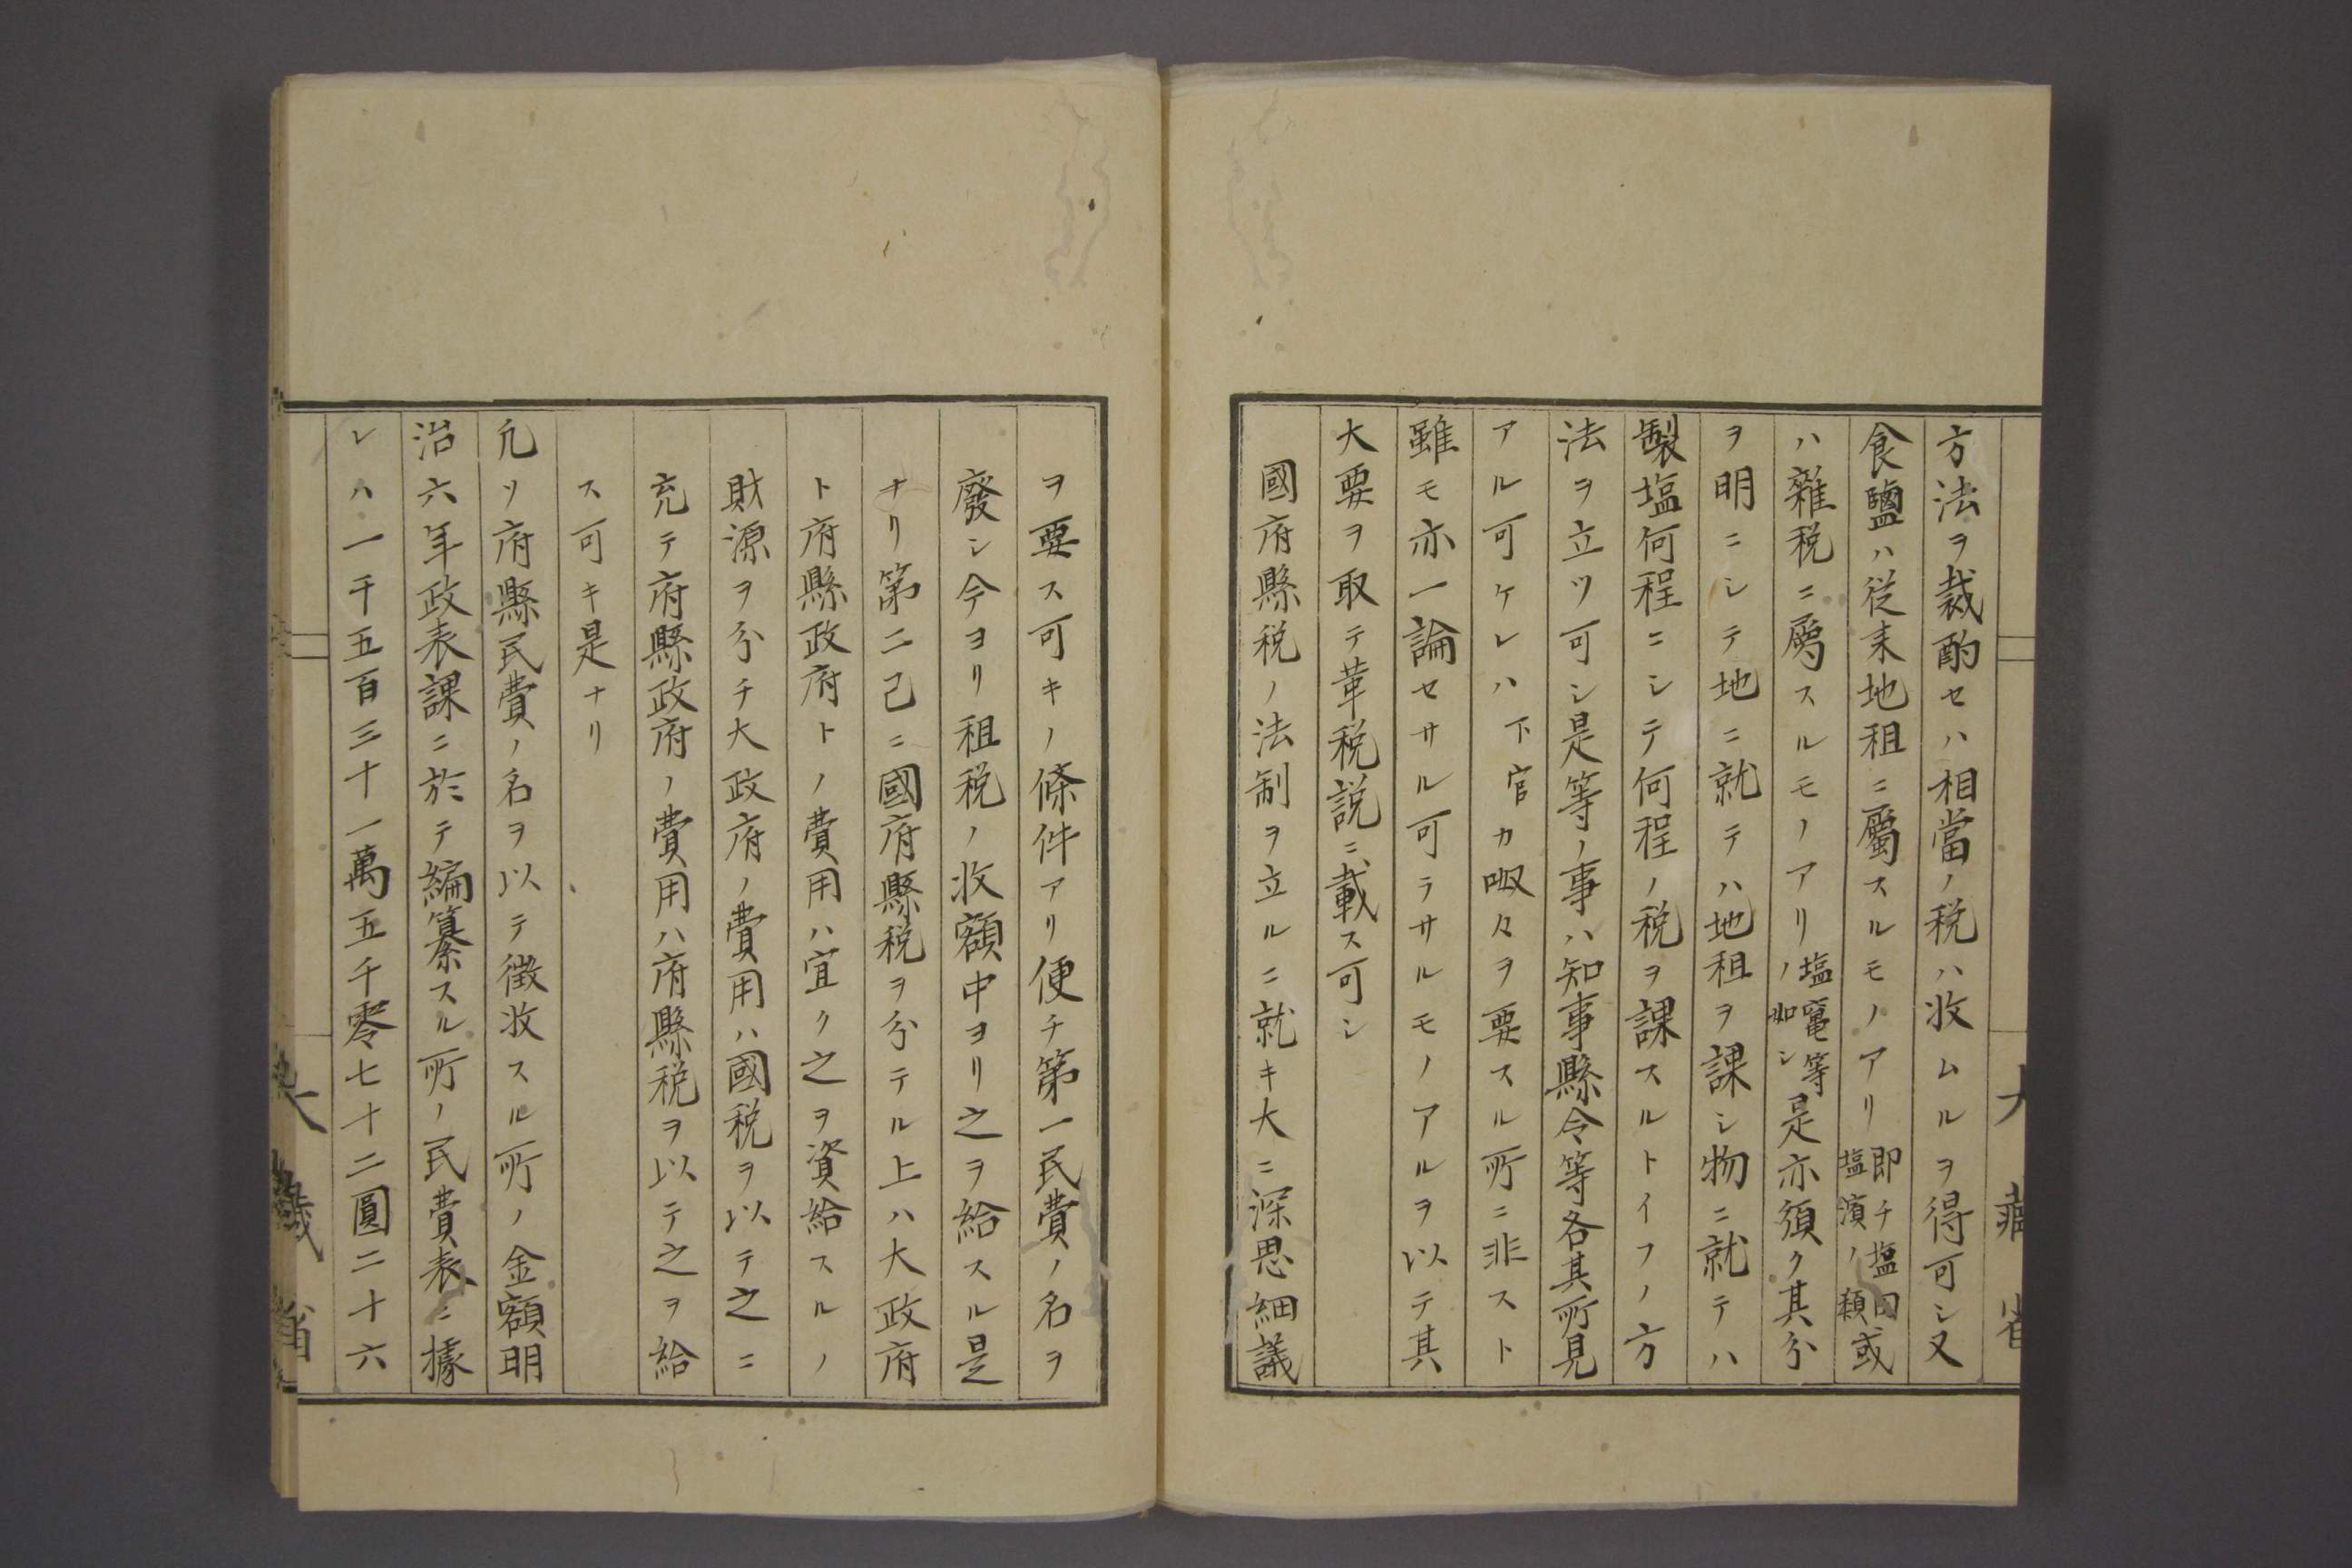 方法ヲ裁酌セハ相當ノ税ハ收ムルヲ得可シ又
食鹽ハ従来地租ニ屬スルモノアリ即チ塩田或塩濱ノ類
ハ雜税ニ屬スルモノアリ塩竃等ノ如シ是亦須ク其分
ヲ明ニシテ地ニ就テハ地租ヲ課シ物ニ就テハ
製塩何程ニシテ何程ノ税ヲ課スルトイフノ方
法ヲ立ツ可シ是等ノ事ハ知事縣令等各其所見
アル可ケレハ下官カ呶々ヲ要スル所ニ非スト
雖モ亦一論セサル可ラサルモノアルヲ以テ其
大要ヲ取テ革税説ニ載ス可シ
國府縣税ノ法制ヲ立ルニ就キ大ニ深思細議
ヲ要ス可キノ條件アリ便チ第一民費ノ名ヲ
廢シ今ヨリ租税ノ收額中ヨリ之ヲ給スル是
ナリ第二己ニ國府縣税ヲ分テル上ハ大政府
ト府縣政府トノ費用ハ宜ク之ヲ資給スルノ
財源ヲ分チ大政府ノ費用ハ國税ヲ以テ之ニ
充テ府縣政府ノ費用ハ府縣税ヲ以テ之ヲ給
ス可キ是ナリ
凢ソ府縣民費ノ名ヲ以テ徴收スル所ノ金額明
治六年政表課ニ於テ編纂スル所ノ民費表ニ據
レハ一千五百三十一萬五千零七十二圓二十六
大藏省